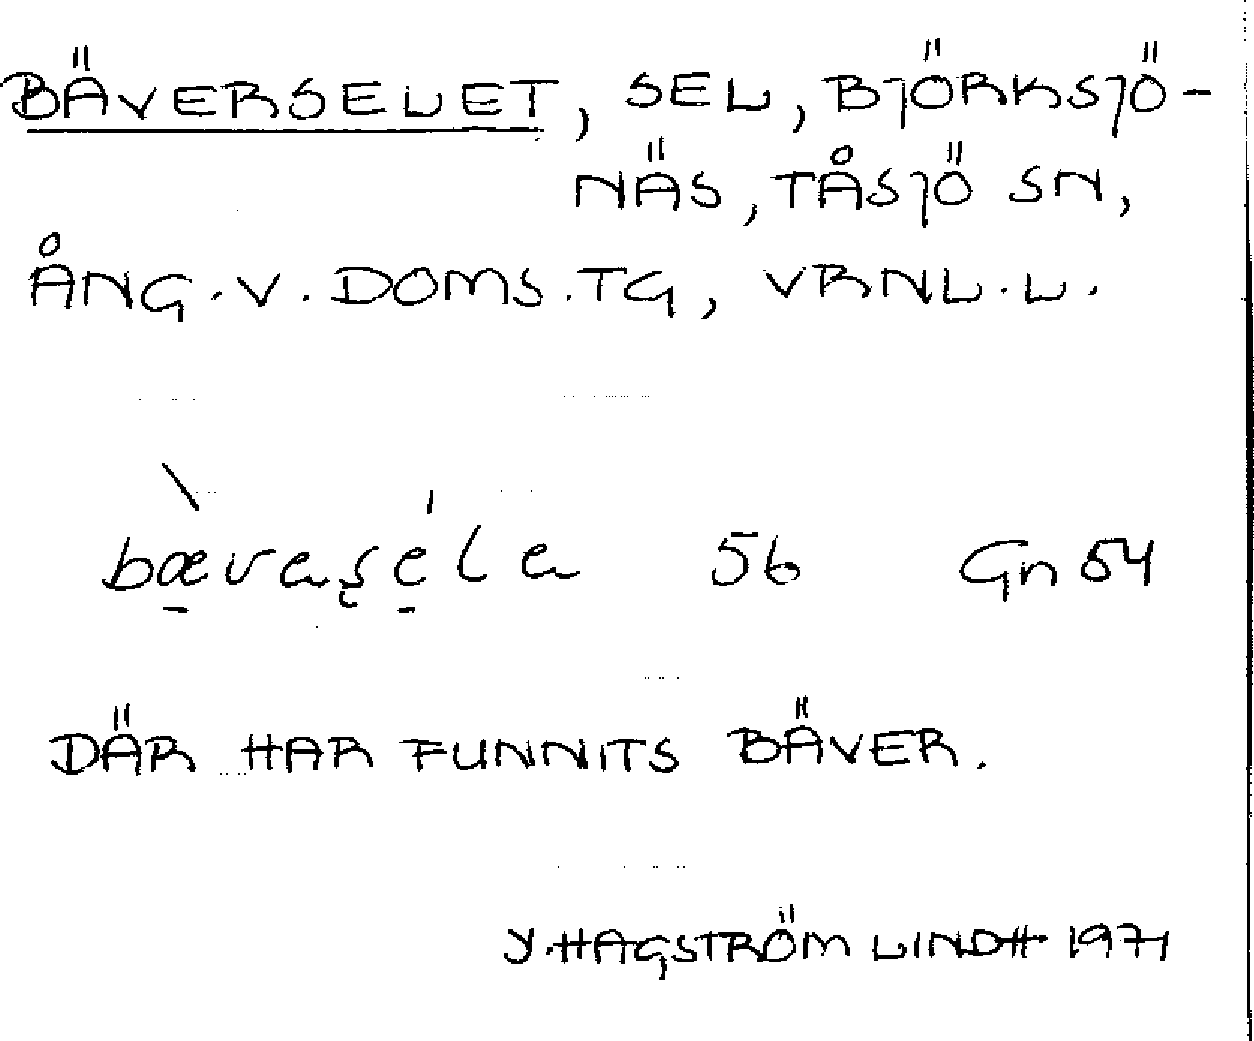 BÄVERSELET, SEL, BJÖRKSJÖ-
NÄS, TÅSJÖ SN,
ÅNG. V. DOMS. TG, VRNL. L.
56 Gn 54
DÄR HAR FUNNITS BÄVER.
Y. HAGSTRÖM LINDH 1971